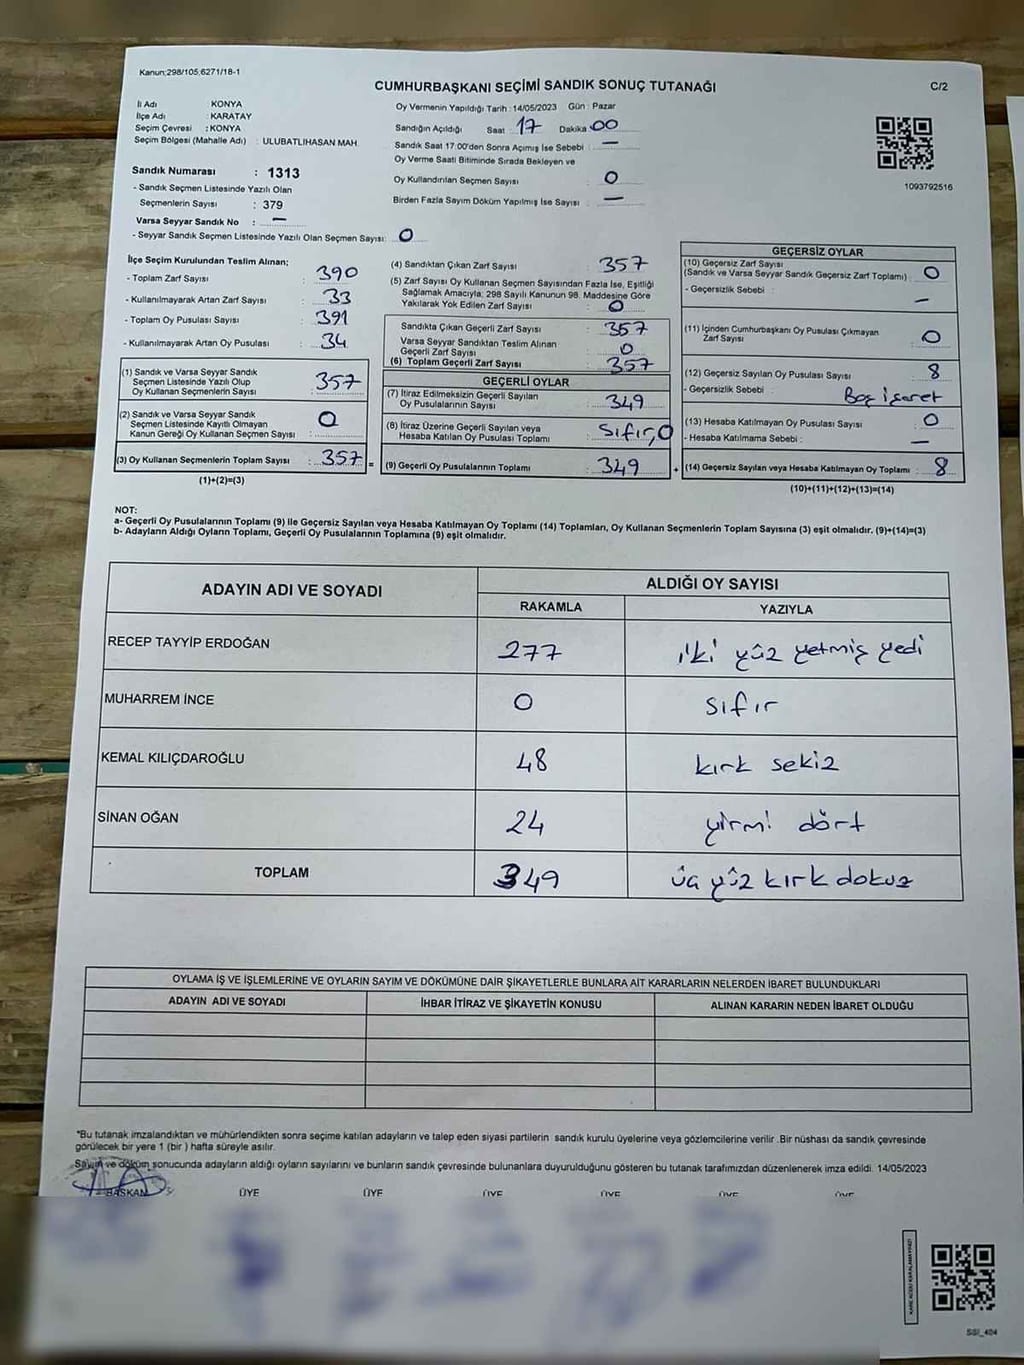 Kanun:298/105,6271/18-1
CUMHURBAŞKANI SEÇİMİ SANDIK SONUÇ TUTANAĞI
C/2
İli Adı KONYA
İlçe Adı : KARATAY
Seçim Çevresi : KONYA
Seçim Bölgesi (Mahalle Adı) : ULUBATLIHASAN MAH.
Sandık Numarası : 1313
- Sandık Seçmen Listesinde Yazılı Olan
Seçmenlerin Sayısı : 379
Varsa Seyyar Sandık No : —
- Seyyar Sandık Seçmen Listesinde Yazılı Olan Seçmen Sayısı: 0
Oy Vermenin Yapıldığı Tarih : 14/05/2023 Gün : Pazar
Sandığın Açıldığı Saat 17 Dakika 00
Sandık Saat 17:00'den Sonra Açımış İse Sebebi : —
Oy Verme Saati Bitiminde Sırada Bekleyen ve
Oy Kullandırılan Seçmen Sayısı : 0
Birden Fazla Sayım Döküm Yapılmış İse Sayısı : —
1093792516
İlçe Seçim Kurulundan Teslim Alınan;
- Toplam Zarf Sayısı : 390
- Kullanılmayarak Artan Zarf Sayısı : 33
- Toplam Oy Pusulası Sayısı : 391
- Kullanılmayarak Artan Oy Pusulası : 34
(1) Sandık ve Varsa Seyyar Sandık
Seçmen Listesinde Yazılı Olup
Oy Kullanan Seçmenlerin Sayısı : 357
(2) Sandık ve Varsa Seyyar Sandık
Seçmen Listesinde Kayıtlı Olmayan
Kanun Gereği Oy Kullanan Seçmen Sayısı : 0
(3) Oy Kullanan Seçmenlerin Toplam Sayısı : 357 =
(1)+(2)=(3)
(4) Sandıktan Çıkan Zarf Sayısı : 357
(5) Zarf Sayısı Oy Kullanan Seçmen Sayısından Fazla İse, Eşitliği
Sağlamak Amacıyla; 298 Sayılı Kanunun 98. Maddesine Göre
Yakılarak Yok Edilen Zarf Sayısı : 0
Sandıkta Çıkan Geçerli Zarf Sayısı : 357
Varsa Seyyar Sandıktan Teslim Alınan
Geçerli Zarf Sayısı : 0
(6) Toplam Geçerli Zarf Sayısı : 357
GEÇERLİ OYLAR
(7) İtiraz Edilmeksizin Geçerli Sayılan
Oy Pusulalarının Sayısı : 349
(8) İtiraz Üzerine Geçerli Sayılan veya
Hesaba Katılan Oy Pusulası Toplamı : Sıfır, 0
(9) Geçerli Oy Pusulalarının Toplamı : 349 +
GEÇERSİZ OYLAR
(10) Geçersiz Zarf Sayısı
(Sandık ve Varsa Seyyar Sandık Geçersiz Zarf Toplamı) : 0
- Geçersizlik Sebebi : —
(11) İçinden Cumhurbaşkanı Oy Pusulası Çıkmayan
Zarf Sayısı : 0
(12) Geçersiz Sayılan Oy Pusulası Sayısı : 8
- Geçersizlik Sebebi : Boş işaret
(13) Hesaba Katılmayan Oy Pusulası Sayısı : 0
- Hesaba Katılmama Sebebi : —
(14) Geçersiz Sayılan veya Hesaba Katılmayan Oy Toplamı : 8
(10)+(11)+(12)+(13)=(14)
NOT:
a- Geçerli Oy Pusulalarının Toplamı (9) ile Geçersiz Sayılan veya Hesaba Katılmayan Oy Toplamı (14) Toplamları, Oy Kullanan Seçmenlerin Toplam Sayısına (3) eşit olmalıdır. (9)+(14)=(3)
b- Adayların Aldığı Oyların Toplamı, Geçerli Oy Pusulalarının Toplamına (9) eşit olmalıdır.
ADAYIN ADI VE SOYADI ALDIĞI OY SAYISI
RAKAMLA YAZIYLA
RECEP TAYYİP ERDOĞAN 277 iki yüz yetmiş yedi
MUHARREM İNCE 0 sıfır
KEMAL KILIÇDAROĞLU 48 kırk sekiz
SİNAN OĞAN 24 yirmi dört
TOPLAM 349 üç yüz kırk dokuz
OYLAMA İŞ VE İŞLEMLERİNE VE OYLARIN SAYIM VE DÖKÜMÜNE DAİR ŞİKAYETLERLE BUNLARA AİT KARARLARIN NELERDEN İBARET BULUNDUKLARI
ADAYIN ADI VE SOYADI İHBAR İTİRAZ VE ŞİKAYETİN KONUSU ALINAN KARARIN NEDEN İBARET OLDUĞU
*Bu tutanak imzalandıktan ve mühürlendikten sonra seçime katılan adayların ve talep eden siyasi partilerin sandık kurulu üyelerine veya gözlemcilerine verilir .Bir nüshası da sandık çevresinde
görülecek bir yere 1 (bir ) hafta süreyle asılır.
Sayım ve döküm sonucunda adayların aldığı oyların sayılarını ve bunların sandık çevresinde bulunanlara duyurulduğunu gösteren bu tutanak tarafımızdan düzenlenerek imza edildi. 14/05/2023
BAŞKAN ÜYE ÜYE ÜYE ÜYE ÜYE ÜYE
SSİ_404